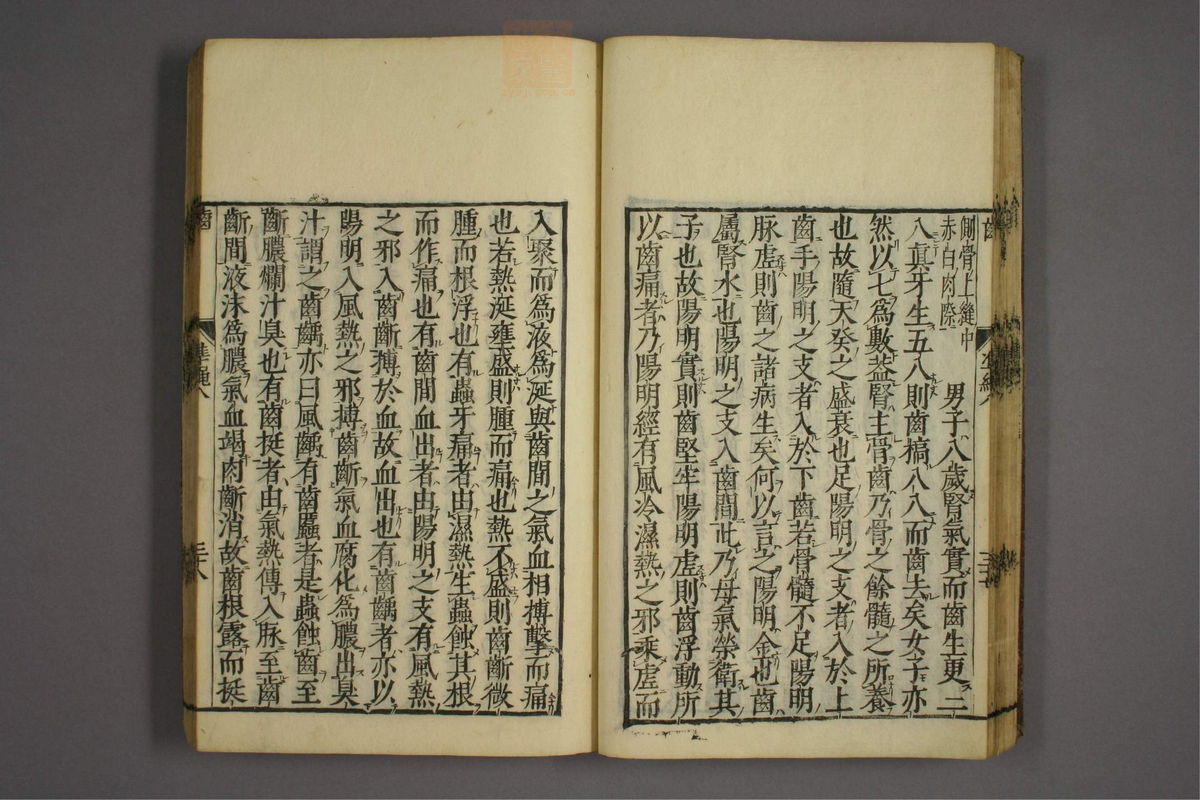 側骨上縫中
赤白肉際
男子八歲腎氣實而齒生更三
八真牙生五八則齒槁八八而齒去矣女子亦
然以七爲數蓋腎主骨齒乃骨之餘髓之所養
也故隨天癸之盛衰也足陽明之支者入於上
齒手陽明之支者入於下齒若骨髓不足陽明
脉虛則齒之諸病生矣何以言之陽明金也齒
屬腎水也陽明之支入齒間此乃母氣榮衛其
子也故陽明實則齒堅牢陽明虛則齒浮動所
以齒痛者乃陽明經有風冷濕熱之邪乘虛而
入聚而爲液爲涎與齒間之氣血相搏擊而痛
也若熱涎壅盛則腫而痛也熱不盛則齒齗微
腫而根浮也有蟲牙痛者由濕熱生蟲蝕其根
而作痛也有齒間血出者由陽明之支有風熱
之邪入齒齗搏於血故血出也有齒齲者亦以
陽明入風熱之邪搏齒齗氣血腐化爲膿出臭
汁謂之齒齲亦曰風齲有齒䘌者是蟲蝕齒至
齗膿爛汁臭也有齒挺者由氣熱傳入脉至齒
齗間液沫爲膿氣血竭肉齗消故齒根露而挺
齒
準繩八
三十八